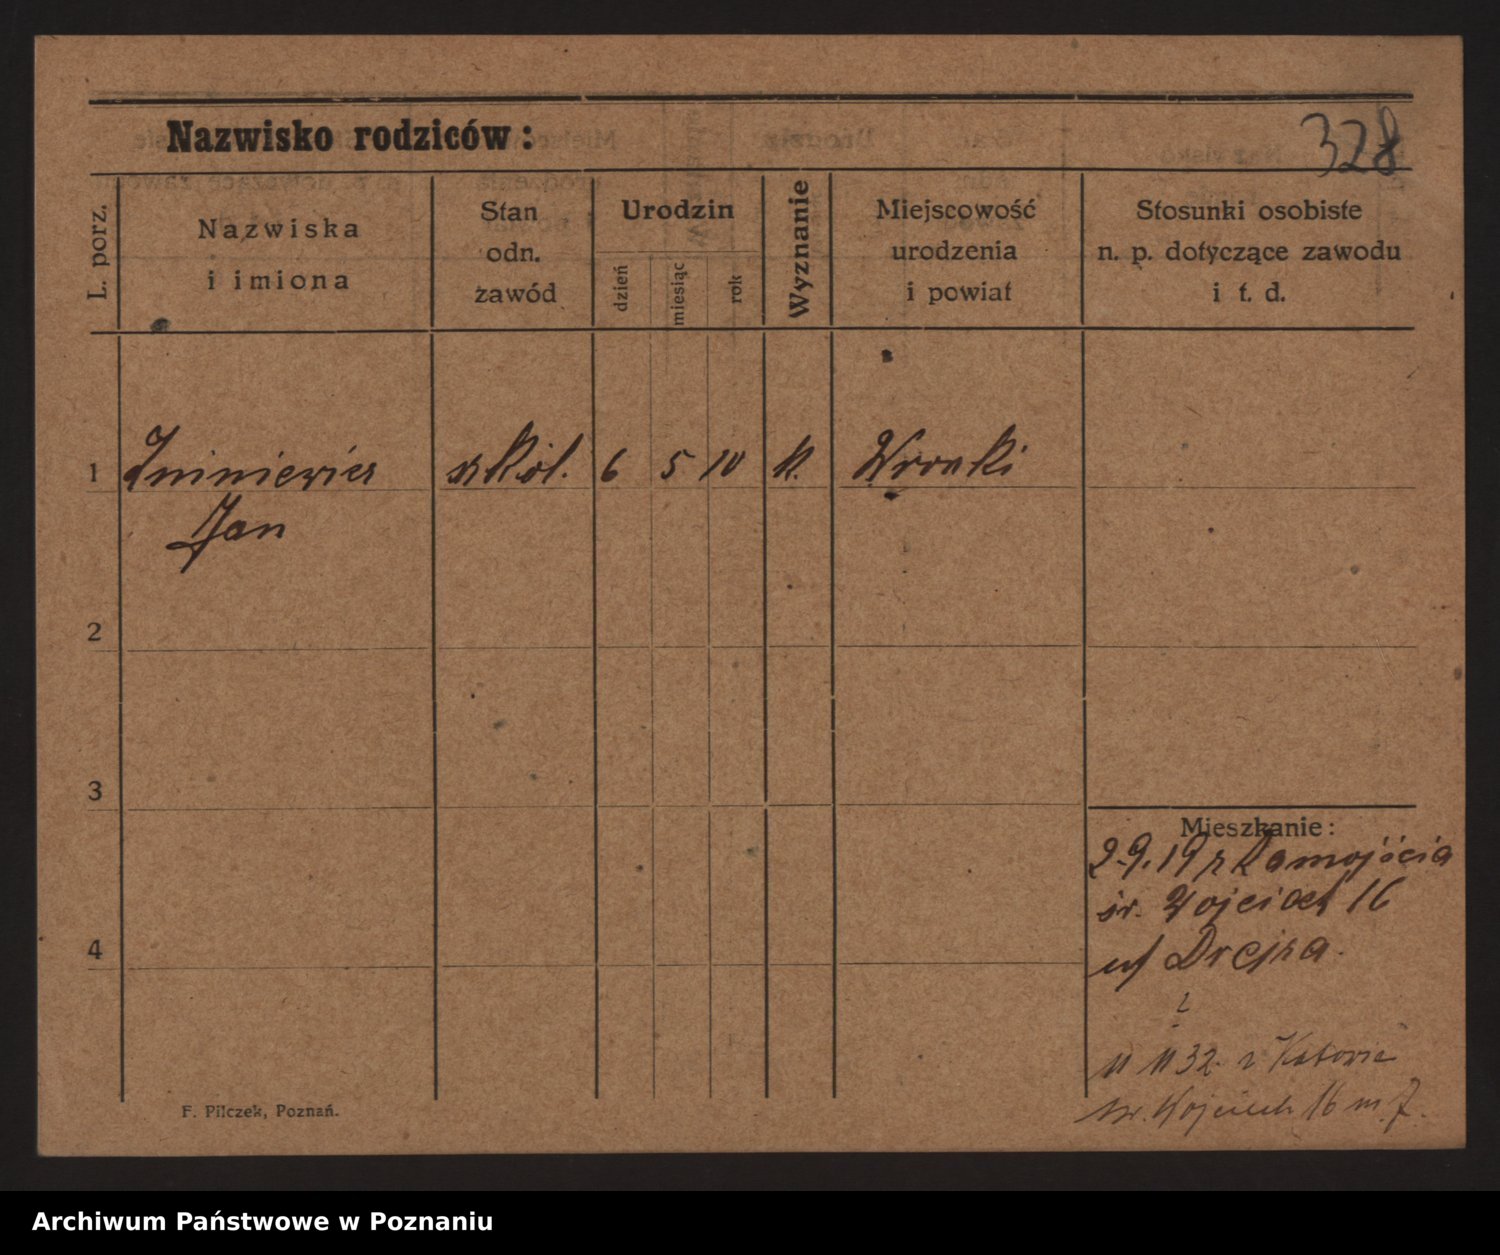 Nazwisko rodziców:
328
L. porz.
Nazwiska
i imiona
Stan
odn.
zawód
Urodzin
dzień
miesiąc
rok
Wyznanie
Miejscowość
urodzenia
i powiat
Stosunki osobiste
n. p. dotyczące zawodu
i t. d.
1
szkol. 6 5 10 k. Wronki
Jan
2
3
4
Mieszkanie:
2.9.19 z Zamojścia
św. Wojciech 16
u/ Drejza.
11 11 32. z Katowic
św. Wojciech 16 m. 7.
F. Pilczek, Poznań.
Archiwum Państwowe w Poznaniu